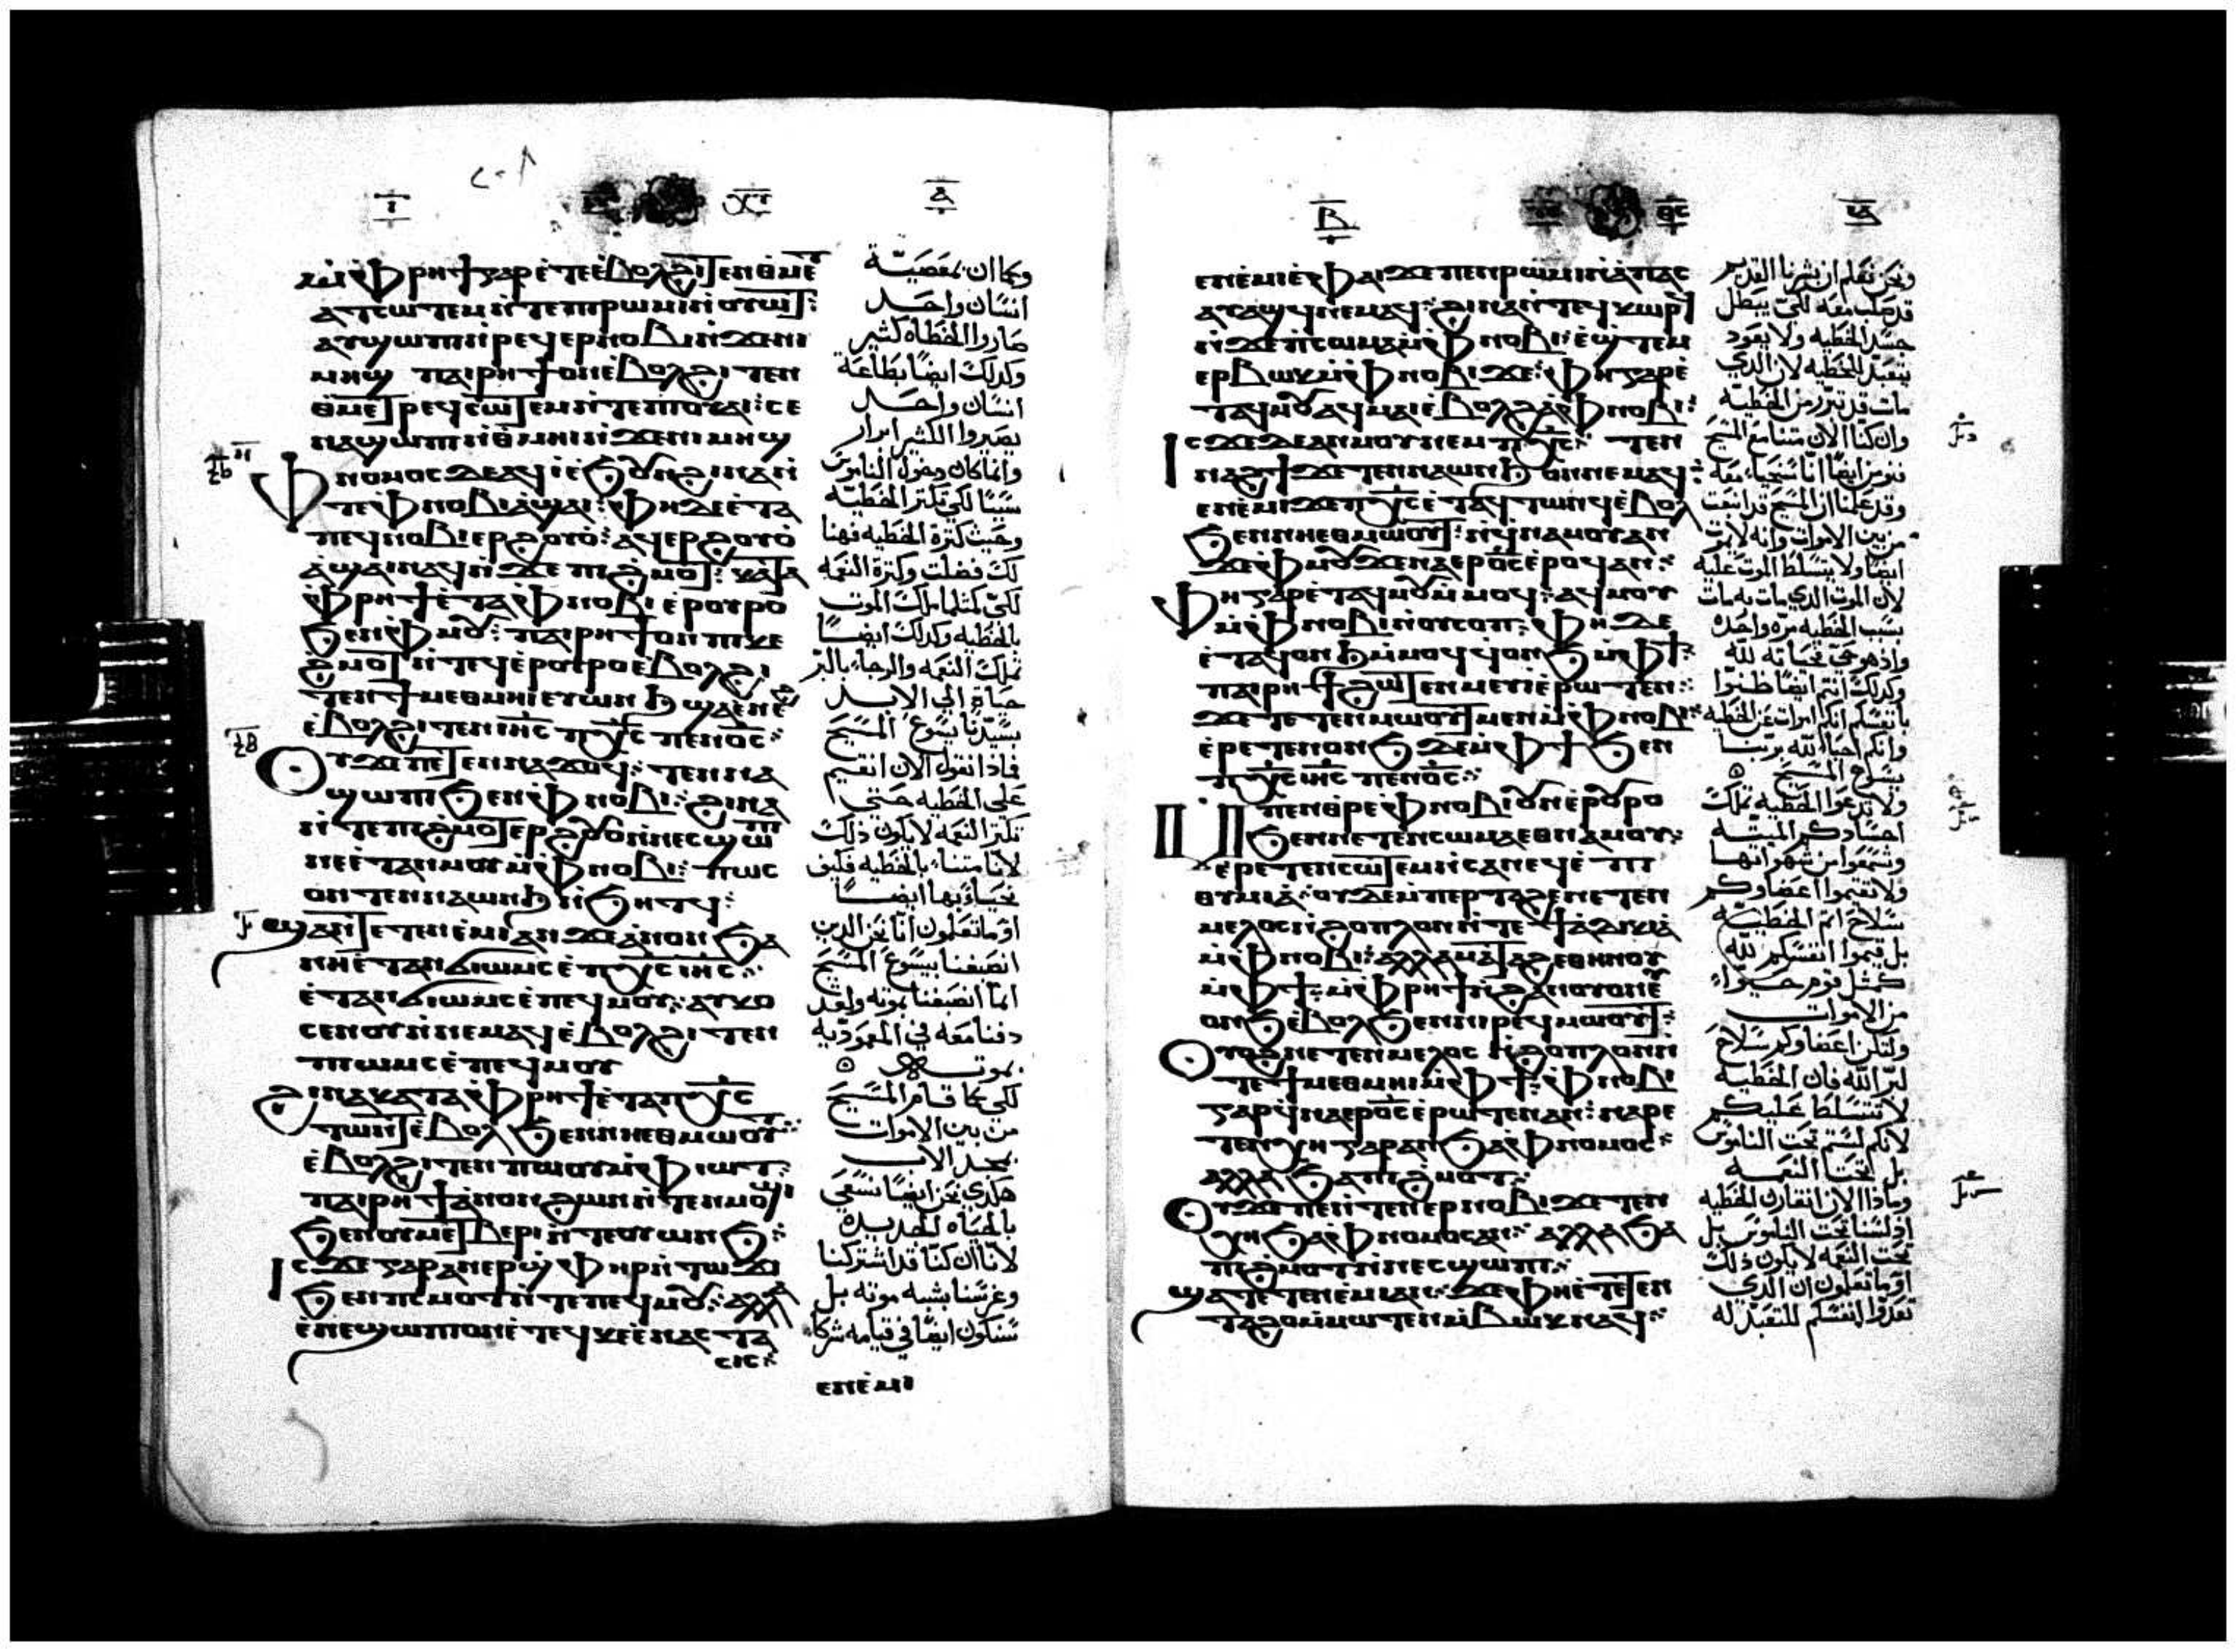 ⲙ̀ⲫⲣⲏϯ ⲅⲁⲣ ⲉ̀ⲧⲉ ⲉ̀ⲃⲟⲗϩⲓⲧⲉⲛ ⲑⲙⲉⲧ
ⲁⲧⲥⲱⲧⲉⲙ ⲛ̀ⲧⲉ ⲡⲓⲣⲱⲙⲓ ⲛ̀ⲟⲩⲱⲧ:
ⲁⲩϣⲱⲡⲓ ⲛ̀ⲣⲉϥⲉⲣⲛⲟⲃⲓ ⲛ̀ϫⲉ ⲛⲓ
ⲙⲏϣ ⲡⲁⲓⲣⲏϯ ⲟⲛ ⲉ̀ⲃⲟⲗϩⲓⲧⲉⲛ
ⲑⲙⲉⲧⲣⲉϥⲥⲱⲧⲉⲙ ⲛ̀ⲧⲉ ⲡⲓⲟⲩⲁⲓ: ⲥⲉ
ⲛⲁϣⲱⲡⲓ ⲛ̀ⲑⲙⲏⲓ ⲛ̀ϫⲉ ⲛⲓⲙⲏϣ
ⲫⲛⲟⲙⲟⲥ ⲇⲉ ⲁϥⲓ ⲉ̀ϧⲟⲩⲛ ϩⲓⲛⲁ ⲛ̀
ⲧⲉ ⲫⲛⲟⲃⲓ ⲁ̀ϣⲁⲓ: ⲫⲏ ⲇⲉ ⲉ̀ⲧⲁ
ⲡⲉϥⲛⲟⲃⲓ ⲉⲣϩⲟⲩⲟ̀: ⲁϥⲉⲣϩⲟⲩⲟ̀
ⲁ̀ϣⲁⲓ ⲛⲁϥ ⲛ̀ϫⲉ ⲡⲓϩⲙⲟⲧ: ⲕⲁⲧⲁ
ⲫⲣⲏϯ ⲉ̀ⲧⲁ ⲫⲛⲟⲃⲓ ⲉ̀ⲣⲟⲩⲣⲟ
ϧⲉⲛ ⲫⲙⲟⲩ: ⲡⲁⲓⲣⲏϯ ⲟⲛ ⲡⲓⲕⲉ
ϩⲙⲟⲧ ⲛ̀ⲧⲉϥⲉ̀ⲣⲟⲩⲣⲟ ⲉ̀ⲃⲟⲗϩⲓ
ⲧⲉⲛ ϯⲙⲉⲑⲙⲏⲓ ⲉⲩⲱⲛϧ ϣⲁⲉⲛⲉϩ
ⲉ̀ⲃⲟⲗϩⲓⲧⲉⲛ ⲓⲏⲥ ⲡⲭⲥ ⲡⲉⲛⲟⲥ:
ⲟⲩ ϫⲉ ⲡⲉⲧⲉⲛⲛⲁϫⲟϥ: ⲧⲉⲛⲛⲁ
ϣⲱⲡⲓ ϧⲉⲛ ⲫⲛⲟⲃⲓ: ϩⲓⲛⲁ
ⲛ̀ⲧⲉ ⲡⲓϩⲙⲟⲧ ⲉⲣϩⲟⲩⲟ ⲛ̀ⲛⲉⲥϣⲱⲡⲓ
ⲛⲏ ⲉ̀ⲧⲁⲛⲙⲟⲩ ⲙ̀ⲫⲛⲟⲃⲓ: ⲡⲱⲥ
ⲟⲛ ⲧⲉⲛⲛⲁⲱⲛϧ ⲛ̀ϧⲏⲧϥ:
ϣⲁⲛ ⲧⲉⲧⲉⲛⲉ̀ⲙⲓ ⲁⲛ ϫⲉ ⲁ̀ⲛⲟⲛ ϧⲁ
ⲛⲏ ⲉ̀ⲧⲁⲛϭⲓⲱⲙⲥ ⲉ̀ⲡⲭⲥ ⲓⲏⲥ:
ⲉ̀ⲧⲁⲛϭⲓⲱⲙⲥ ⲉ̀ⲡⲉϥⲙⲟⲩ: ⲁⲩⲕⲟ
ⲥⲉⲛ ⲟⲩⲛ ⲛⲉⲙⲁϥ ⲉ̀ⲃⲟⲗϩⲓⲧⲉⲛ
ⲡⲓⲱⲙⲥ ⲉ̀ⲡⲉϥⲙⲟⲩ
ϩⲓⲛⲁ ⲕⲁⲧⲁ ⲫⲣⲏϯ ⲉ̀ⲧⲁ ⲡⲭⲥ
ⲧⲱⲛϥ ⲉ̀ⲃⲟⲗ ϧⲉⲛ ⲛⲏⲉⲑⲙⲱⲟⲩⲧ:
ⲉ̀ⲃⲟⲗϩⲓⲧⲉⲛ ⲡⲱⲟⲩ ⲙ̀ⲫⲓⲱⲧ:
ⲡⲁⲓⲣⲏϯ ⲁ̀ⲛⲟⲛ ϩⲱⲛ ⲛ̀ⲧⲉⲛⲙⲟϣⲓ
ϧⲉⲛ ⲟⲩⲙⲉⲧⲃⲉⲣⲓ ⲛ̀ⲧⲉ ⲟⲩⲱⲛϧ:
ⲓⲥϫⲉ ⲅⲁⲣ ⲁⲛⲉⲣϣⲫⲏⲣ ⲛ̀ⲧⲱϫⲓ
ϧⲉⲛ ⲡⲓⲥⲙⲟⲧ ⲛ̀ⲧⲉ ⲡⲉϥⲙⲟⲩ: ⲁⲗⲗⲁ
ⲉ̀ⲛⲉϣⲱⲡⲓ ⲟⲛ ⲉ̀ⲧⲉϥⲕⲉⲁ̀ⲛⲁⲥⲧⲁ
ⲥⲓⲥ:
ⲉⲛⲉ̀ⲙⲓ
وكما ان بمعصيّة
انسان واحد
صاروا الخطاه كثير
وكدلك ايضًا بطاعة
انسان واحد
يصيروا الكثير ابرار
وانما كان دخول الناموس
سببًا لكي تكثر الخطيّه
وحيث كثرة الخطيه فهنا
لك فضلت وكثرة النعمه
لكي كمثلما ملك الموت
بالخطيه وكدلك ايضًا
تملك النعمه بالبرّ
حياة الي الابد
بسيّدنا يسوع المسيح
فماذا نقول الان انقيم
علي الخطيه حتي
تكثر النعمه لا يكون ذلك
لانا متنا بالخطيه فكيف
نحيا بها ايضًا
اوما تعلمون انّا نحن الدين
انصبغنا بيسوع المسيح
انما انصبغنا بموته ولقد
دفنا معه في المعموديه
بموته
لكي كما قام المسيح
من بين الاموات
بمجد الاب
هكدي نحن ايضًا نسعي
بالحياه الجديده
لانا ان كنا قد اشتركنا
وغرسنا بشبه موته بل
سنكون ايضًا في قيامه شركا
ⲉⲛⲉ̀ⲙⲓ ⲉ̀ⲫⲁⲓ ϫⲉ ⲡⲉⲛⲣⲱⲙⲓ ⲛ̀ⲁ̀ⲡⲁⲥ
ⲁⲩⲁϣϥ ⲛⲉⲙⲁϥ: ϩⲓⲛⲁ ⲛ̀ⲧⲉϥⲕⲱⲣϥ
ⲛ̀ϫⲉ ⲡⲓⲥⲱⲙⲁ ⲙ̀ⲫⲛⲟⲃⲓ: ⲉ̀ϣⲧⲉⲙ
ⲉⲣⲃⲱⲕ ⲙ̀ⲫⲛⲟⲃⲓ ϫⲉ: ⲫⲏ ⲅⲁⲣ ⲉ̀
ⲧⲁϥⲙⲟⲩ ⲁϥⲙⲁⲓ ⲉ̀ⲃⲟⲗϩⲁ ⲫⲛⲟⲃⲓ:
ⲓⲥϫⲉ ⲇⲉ ⲁⲛⲙⲟⲩ ⲛⲉⲙ ⲡⲭⲥ: ⲧⲉⲛ
ⲛⲁϩϯ ϫⲉ ⲧⲉⲛⲛⲁⲱⲛϧ ⲟⲛ ⲛⲉⲙⲁϥ:
ⲉⲛⲉ̀ⲙⲓ ϫⲉ ⲡⲭⲥ ⲉ̀ⲧⲁϥⲧⲱⲛϥ ⲉ̀ⲃⲟⲗ
ϧⲉⲛ ⲛⲏⲉⲑⲙⲱⲟⲩⲧ: ⲛ̀ϥⲛⲁⲙⲟⲩ ⲁⲛ
ϫⲉ ⲫⲙⲟⲩ ϫⲉ ⲛⲁⲉⲣⲟⲥ ⲉ̀ⲣⲟϥ ⲁⲛ:
ⲫⲏ ⲅⲁⲣ ⲉ̀ⲧⲁϥⲙⲟⲩ ⲙ̀ⲙⲟϥ: ⲁϥⲙⲟⲩ
ⲙ̀ⲫⲛⲟⲃⲓ ⲛ̀ⲟⲩⲥⲟⲡ: ⲫⲏ ⲇⲉ
ⲉ̀ⲧⲁϥⲟⲛϧ ⲙ̀ⲙⲟϥ ϥⲟⲛϧ ⲙ̀ⲫϯ:
ⲡⲁⲓⲣⲏϯ ϩⲱⲧⲉⲛ ⲙⲉⲩⲓ ⲉ̀ⲣⲱⲧⲉⲛ:
ϫⲉ ⲧⲉⲧⲉⲛⲙⲱⲟⲩⲧ ⲙⲉⲛ ⲙ̀ⲫⲛⲟⲃⲓ:
ⲉ̀ⲣⲉⲧⲉⲛⲟⲛϧ ⲇⲉ ⲙ̀ⲫϯ ϧⲉⲛ
ⲡⲭⲥ ⲓⲏⲥ ⲡⲉⲛⲟⲥ:
ⲙⲡⲉⲛⲑⲣⲉ ⲫⲛⲟⲃⲓ ⲟⲩⲛ ⲉ̀ⲣⲟⲩⲣⲟ
ϧⲉⲛ ⲡⲉⲧⲉⲛⲥⲱⲙⲁ ⲉⲑⲛⲁⲙⲟⲩ:
ⲉ̀ⲣⲉⲧⲉⲛⲥⲱⲧⲉⲙ ⲛ̀ⲥⲁ ⲛⲉϥⲉ̀ⲡⲓ
ⲑⲩⲙⲓⲁ: ⲟⲩⲇⲉ ⲙ̀ⲡⲉⲣⲧⲁϩⲉ ⲛⲉⲧⲉⲛ
ⲙⲉⲗⲟⲥ ⲛ̀ϩⲟⲡⲗⲟⲛ ⲛ̀ⲧⲉ ϯⲁ̀ⲇⲓⲕⲓⲁ
ⲙ̀ⲫⲛⲟⲃⲓ: ⲁⲗⲗⲁ ⲙⲁⲧⲁϩⲉ ⲑⲏⲛⲟⲩ
ⲙ̀ⲫϯ: ⲙ̀ⲫⲣⲏϯ ⲛ̀ϩⲁⲛⲟⲩⲟⲛ ⲉⲩ
ⲟⲛϧ ⲉ̀ⲃⲟⲗ ϧⲉⲛ ⲛⲓⲣⲉϥⲙⲱⲟⲩⲧ:
ⲟⲩⲟϩ ⲛⲉⲧⲉⲛⲙⲉⲗⲟⲥ ⲛ̀ϩⲟⲡⲗⲟⲛ ⲛ̀
ⲧⲉ ϯⲙⲉⲑⲙⲏⲓ ⲙ̀ⲫϯ: ⲫⲛⲟⲃⲓ
ⲅⲁⲣ ϥⲛⲁⲉⲣⲟⲥ ⲉ̀ⲣⲱⲧⲉⲛ ⲁⲛ: ⲛⲁⲣⲉ
ⲧⲉⲛⲭⲏ ⲅⲁⲣ ⲁⲛ ϧⲁ ⲫⲛⲟⲙⲟⲥ:
ⲁⲗⲗⲁ ϧⲁ ⲡⲓϩⲙⲟⲧ:
ⲟⲩ ϫⲉ ⲡⲉ ⲛ̀ⲧⲉⲛⲉⲣⲛⲟⲃⲓ ϫⲉ ⲧⲉⲛ
ⲭⲏ ϧⲁ ⲫⲛⲟⲙⲟⲥ ⲁⲛ: ⲁⲗⲗⲁ ϧⲁ
ⲡⲓϩⲙⲟⲧ ⲛ̀ⲛⲉⲥϣⲱⲡⲓ:
ϣⲁⲧⲉⲧⲉⲛⲉ̀ⲙⲓ ⲁⲛ: ϫⲉ ⲫⲏ ⲉ̀ⲧⲉⲧⲉⲛ
ⲧⲁϩⲟ ⲙ̀ⲙⲱⲧⲉⲛ ⲙ̀ⲃⲱⲕ ⲛⲁϥ:
ونحن نعلم ان بشرنا القديم
قد صلب معه لكي يبطل
جسد الخطيه ولا يعود
يتعبد للخطيه لان الدي
مات قد تبرر من الخطيّه
وان كنا الان متنا مع المسيح
نومن ايضًا انّا سنحيا معه
وقد علمنا ان المسيح قد انبعث
من بين الاموات وانه لا يموت
ايضًا ولا يتسلط الموت عليه
لان الموت الدي مات به مات
بسبب الخطيه مره واحده
واذ هو حي فحياته للّه
وكدلك انتم ايضًا ظنوا
بانفسكم انكم اموات عن الخطيه
وانكم احيا للّه بربنا
يسوع المسيح
ولا تدعوا الخطيه تملك
اجسادكم الميته
وتسمعوا من شهواتها
ولا تقيموا اعضاوكم
سلاح اثم الخطيّه
بل قيموا انفسكم للّه
كمثل قوم حيوا
من الاموات
ولتكن اعضاوكم سلاح
لبر اللّه فان الخطيه
لا تتسلط عليكم
لانكم لستم تحت الناموس
بل تحت النعمه
وماذا الان انقارف الخطيه
اذ لسنا تحت الناموس بل
تحت النعمه لا يكون ذلك
اوما تعلمون ان الدي
تعدوا انفسكم للتعبد له